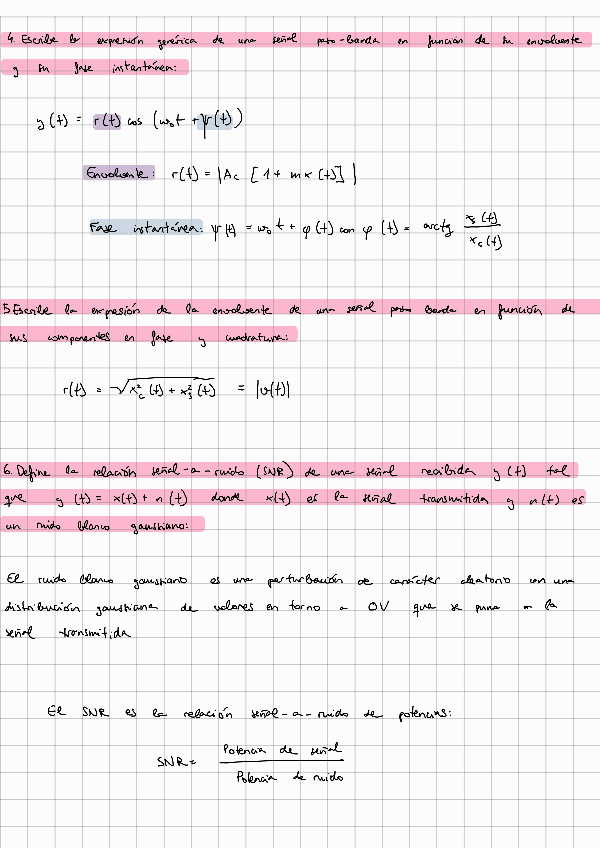 4. Escribe la expresión genérica de una señal paso-banda en función de su envolvente
y su fase instantánea:
y(t) = r(t) cos (ω₀t + ψ(t))
Envolvente: r(t) = |Ac [1 + mx(t)]|
Fase instantánea: ψ(t) = ω₀t + φ(t) con φ(t) = arctg xs(t)/xc(t)
5. Escribe la expresión de la envolvente de una señal paso banda en función de
sus componentes en fase y cuadratura:
r(t) = √(xc²(t) + xs²(t)) = |v(t)|
6. Define la relación señal-a-ruido (SNR) de una señal recibida y(t) tal
que y(t) = x(t) + n(t) donde x(t) es la señal transmitida y n(t) es
un ruido blanco gaussiano:
El ruido blanco gaussiano es una perturbación de carácter aleatorio con una
distribución gaussiana de valores en torno a 0V que se suma a la
señal transmitida
El SNR es la relación señal-a-ruido de potencias:
SNR = Potencia de señal / Potencia de ruido